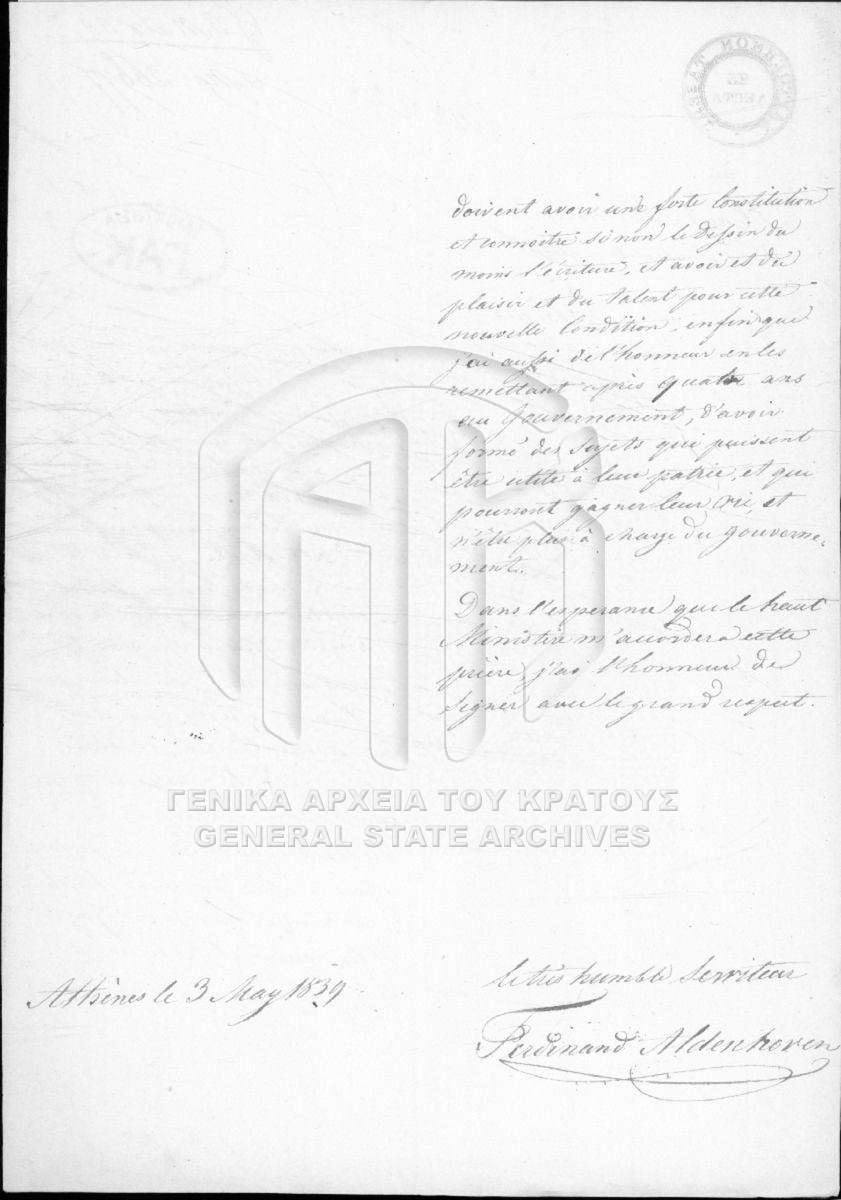 25
ΓΑΚ
doivent avoir une forte Constitution
et connoitre si non le dessin du
moins l'écriture, et avoir et du
plaisir et du talent pour cette
nouvelle Condition, enfin que
j'ai aussi de l'honneur en les
remettant après quatre ans
au Gouvernement, d'avoir
formé des sujets qui puissent
être utile à leur patrie, et qui
pourront gagner leur vie, et
n'être plus à charge du gouverne-
ment.
Dans l'esperance que le haut
Ministère m'accordera cette
prière, j'ai l'honneur de
signer avec le grand respect.
ΓΕΝΙΚΑ ΑΡΧΕΙΑ ΤΟΥ ΚΡΑΤΟΥΣ
GENERAL STATE ARCHIVES
le très humble Serviteur
Athènes le 3 May 1839
Ferdinand Aldenhoven